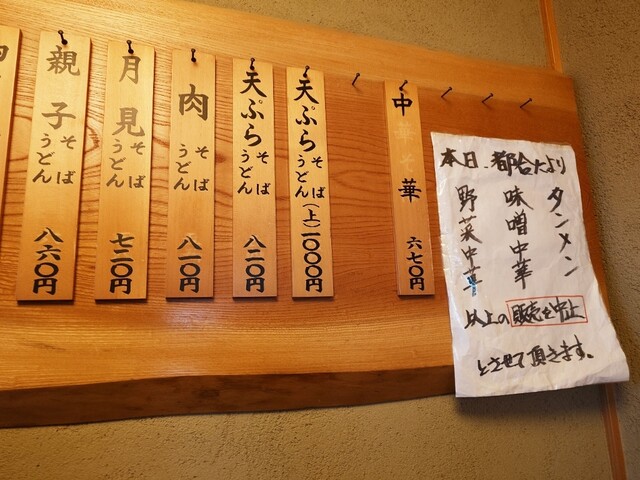 本日、都合により
タンメン
味噌中華
野菜中華
以上の販売を中止
とさせて頂きます。
中華 六七〇円
天ぷら そば うどん (上) 一〇〇〇円
天ぷら そば うどん 八二〇円
肉 そば うどん 八一〇円
月見 そば うどん 七二〇円
親子 そば うどん 八六〇円